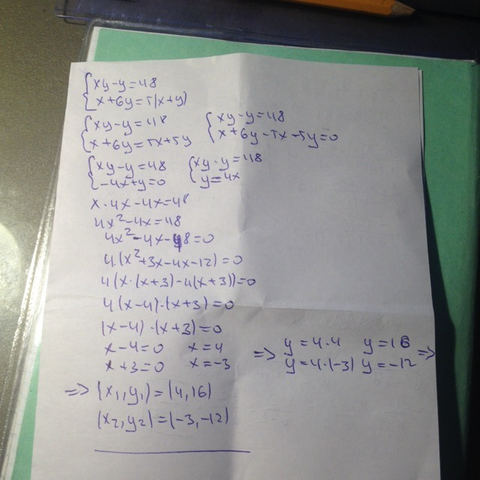 { xy-y=48
{ x+6y=5(x+y)
{ xy-y=48 { xy-y=48
{ x+6y=5x+5y { x+6y-5x-5y=0
{ xy-y=48 { xy-y=48
{ -4x+y=0 { y=4x
x·4x-4x=48
4x²-4x=48
4x²-4x-48=0
4(x²+3x-4x-12)=0
4(x·(x+3)-4(x+3))=0
4(x-4)·(x+3)=0
(x-4)·(x+3)=0
x-4=0 x=4 => y=4·4 y=16 =>
x+3=0 x=-3 y=4·(-3) y=-12
=> (x₁,y₁)=(4,16)
(x₂,y₂)=(-3,-12)